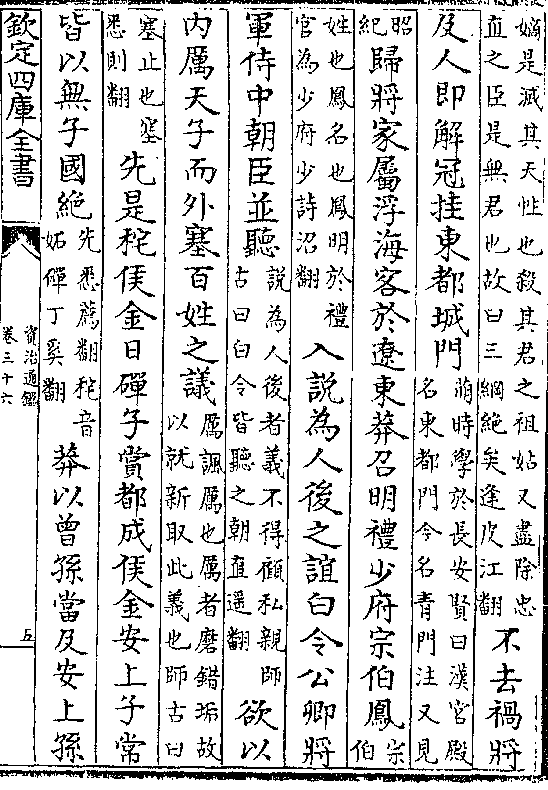 嫡是滅其天性也殺其君之祖姑又盡除忠
直之臣是無君也故曰三綱絶矣逢皮江翻
不去禍將
及人即解冠挂東都城門
萌時學於長安賢曰漢宮殿
名東都門今名青門注又見
昭
紀
歸將家屬浮海客於遼東莽召明禮少府宗伯鳳
宗
伯
姓也鳳名也鳳明於禮
官為少府少詩沼翻
入說為人後之誼白令公卿將
軍侍中朝臣並聽
説為人後者義不得顧私親師
古曰白令皆聽之朝直遥翻
欲以
内厲天子而外塞百姓之議
厲諷厲也厲者磨錯垢故
以就新取此義也師古曰
塞止也塞
悉則翻
先是秺侯金日磾子賞都成侯金安上子常
皆以無子國絶
先悉薦翻秺音
妬磾丁奚翻
莽以曾孫當及安上孫
欽定四庫全書
資治通鑑
卷三十六
五